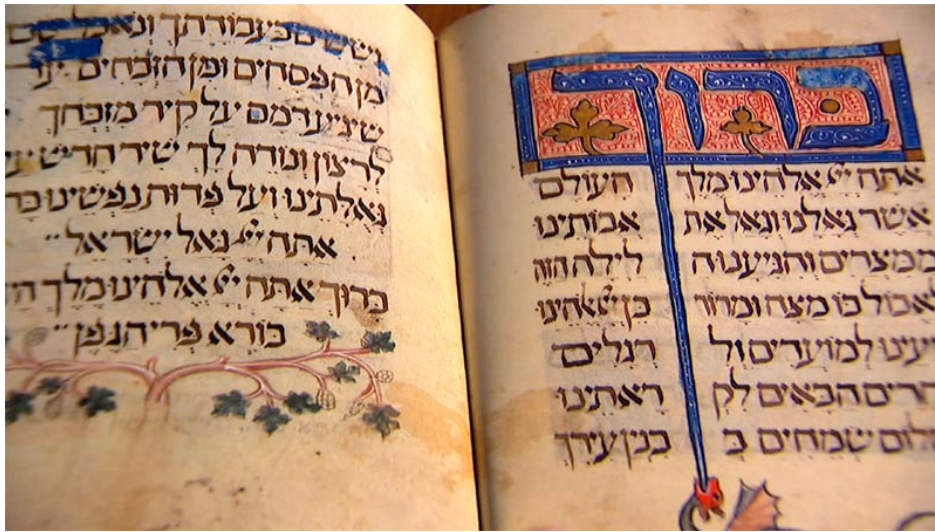 ברוך
אתה יי אלהינו מלך העולם
אשר גאלנו וגאל את אבותינו
ממצרים והגיענו ה לילה הזה
לאכול בו מצה ומרור כן יי אלהינו
למועדים ול רגלים
הבאים לק ראתינו
שמחים ב בנין עירך
וששים בעבודתך ונאכל שם
מן הפסחים ומן הזבחים
שיגיע דמם על קיר מזבחך
לרצון ונודה לך שיר חדש
גאלתינו ועל פדות נפשינו
אתה יי גאל ישראל
ברוך אתה יי אלהינו מלך
בורא פרי הגפן